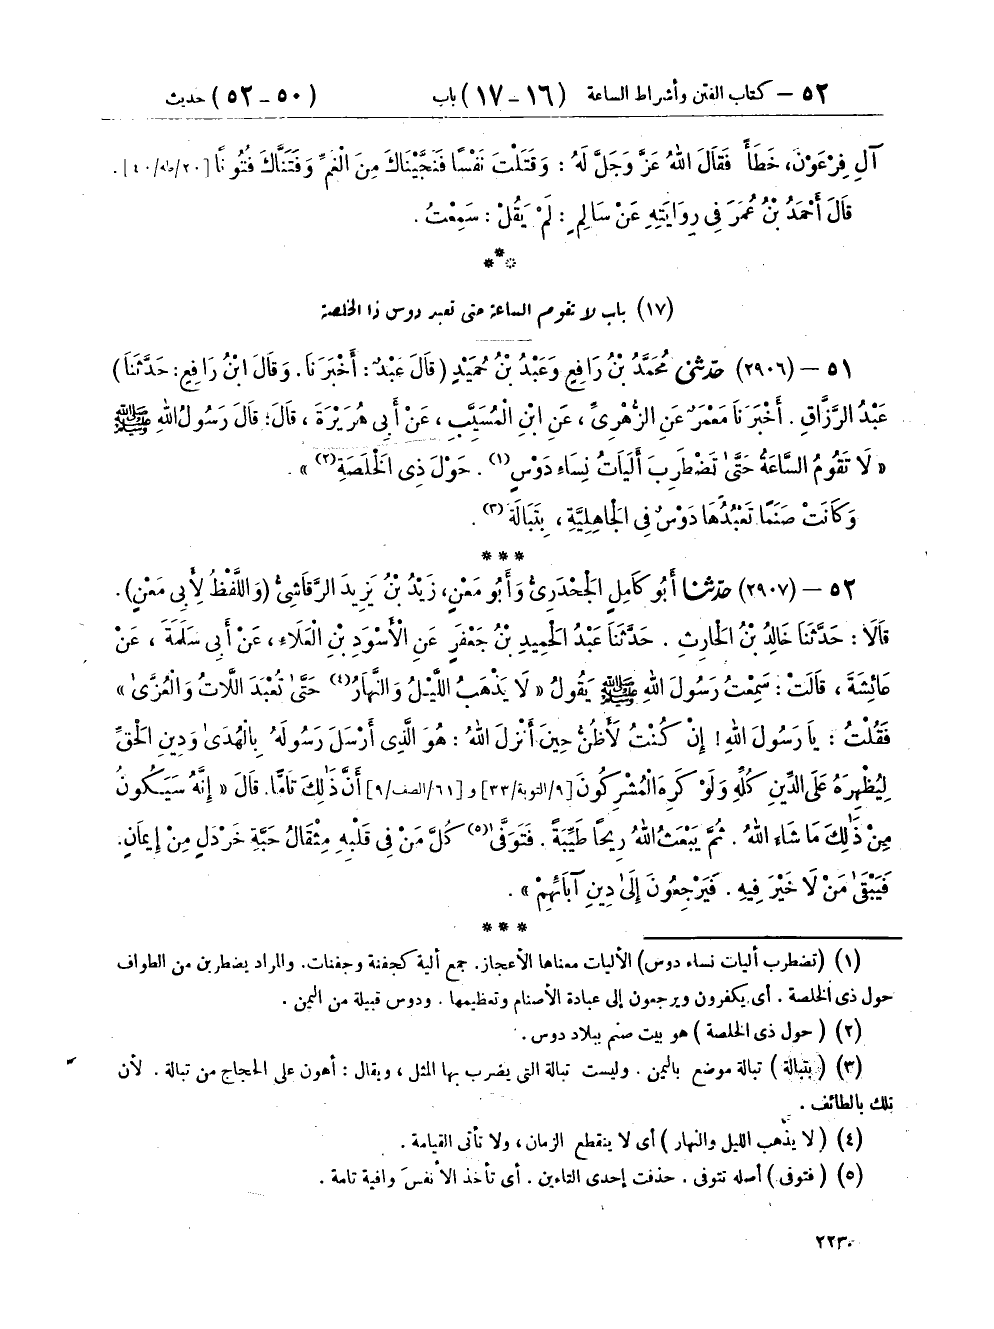 ٥٢ – كتاب الفتن وأشراط الساعة (١٦ – ١٧) باب (٥٠ – ٥٢) حديث
آلِ فِرْعَوْنَ، خَطَأً فَقَالَ اللهُ عَزَّ وَجَلَّ لَهُ : وَقَتَلْتَ نَفْسًا فَنَجَّيْنَاكَ مِنَ الْغَمِّ وَفَتَنَّاكَ فُتُونًا [٢٠/طه/٤٠] .
قَالَ أَحْمَدُ بْنُ عُمَرَ فِى رِوَايَتِهِ عَنْ سَالِمٍ : لَمْ يَقُلْ : سَمِعْتُ .
***
(١٧) باب لا تقوم الساعة حتى تعبد دوس ذا الخلصة
٥١ – (٢٩٠٦) حدثنى مُحَمَّدُ بْنُ رَافِعٍ وَعَبْدُ بْنُ حُمَيْدٍ (قَالَ عَبْدٌ : أَخْبَرَنَا . وَقَالَ ابْنُ رَافِعٍ : حَدَّثَنَا)
عَبْدُ الرَّزَّاقِ . أَخْبَرَنَا مَعْمَرٌ عَنِ الزُّهْرِىِّ ، عَنِ ابْنِ الْمُسَيَّبِ ، عَنْ أَبِى هُرَيْرَةَ ، قَالَ: قَالَ رَسُولُ اللهِ ﷺ
« لَا تَقُومُ السَّاعَةُ حَتَّى تَضْطَرِبَ أَلَيَاتُ نِسَاءِ دَوْسٍ(١) . حَوْلَ ذِى الْخَلَصَةِ(٢) » .
وَكَانَتْ صَنَمًا تَعْبُدُهَا دَوْسٌ فِى الْجَاهِلِيَّةِ ، بِتَبَالَةَ(٣) .
***
٥٢ – (٢٩٠٧) حدثنا أَبُو كَامِلٍ الْجَحْدَرِىُّ وَأَبُو مَعْنٍ، زَيْدُ بْنُ يَزِيدَ الرَّقَاشِىُّ (وَاللَّفْظُ لِأَبِى مَعْنٍ) .
قَالَا : حَدَّثَنَا خَالِدُ بْنُ الْحَارِثِ . حَدَّثَنَا عَبْدُ الْحَمِيدِ بْنُ جَعْفَرٍ عَنِ الْأَسْوَدِ بْنِ الْعَلَاءِ ، عَنْ أَبِى سَلَمَةَ ، عَنْ
عَائِشَةَ ، قَالَتْ : سَمِعْتُ رَسُولَ اللهِ ﷺ يَقُولُ « لَا يَذْهَبُ اللَّيْلُ وَالنَّهَارُ(٤) حَتَّى تُعْبَدَ اللَّاتُ وَالْعُزَّىٰ »
فَقُلْتُ : يَا رَسُولَ اللهِ ! إِنْ كُنْتُ لَأَظُنُّ حِينَ أَنْزَلَ اللهُ : هُوَ الَّذِى أَرْسَلَ رَسُولَهُ بِالْهُدَىٰ وَدِينِ الْحَقِّ
لِيُظْهِرَهُ عَلَى الدِّينِ كُلِّهِ وَلَوْ كَرِهَ الْمُشْرِكُونَ [٩/التوبة/٣٣] و [٦١/الصف/٩] أَنَّ ذَٰلِكَ تَامًّا. قَالَ « إِنَّهُ سَيَكُونُ
مِنْ ذَٰلِكَ مَا شَاءَ اللهُ . ثُمَّ يَبْعَثُ اللهُ رِيحًا طَيِّبَةً . فَتَوَفَّىٰ(٥) كُلَّ مَنْ فِى قَلْبِهِ مِثْقَالُ حَبَّةِ خَرْدَلٍ مِنْ إِيمَانٍ.
فَيَبْقَىٰ مَنْ لَا خَيْرَ فِيهِ . فَيَرْجِعُونَ إِلَىٰ دِينِ آبَائِهِمْ » .
***
(١) (تضطرب أليات نساء دوس) الأليات معناها الأعجاز. جمع ألية كجفنة وجفنات. والمراد يضطربن من الطواف
حول ذى الخلصة . أى يكفرون ويرجعون إلى عبادة الأصنام وتعظيمها . ودوس قبيلة من اليمن .
(٢) ( حول ذى الخلصة ) هو بيت صنم ببلاد دوس .
(٣) ( بتبالة ) تبالة موضع باليمن . وليست تبالة التى يضرب بها المثل ، ويقال : أهون على الحجاج من تبالة . لأن
تلك بالطائف .
(٤) ( لا يذهب الليل والنهار ) أى لا ينقطع الزمان ، ولا تأتى القيامة .
(٥) ( فتوفى ) أصله تتوفى . حذفت إحدى التاءين . أى تأخذ الأنفس وافية تامة .
٢٢٣٠